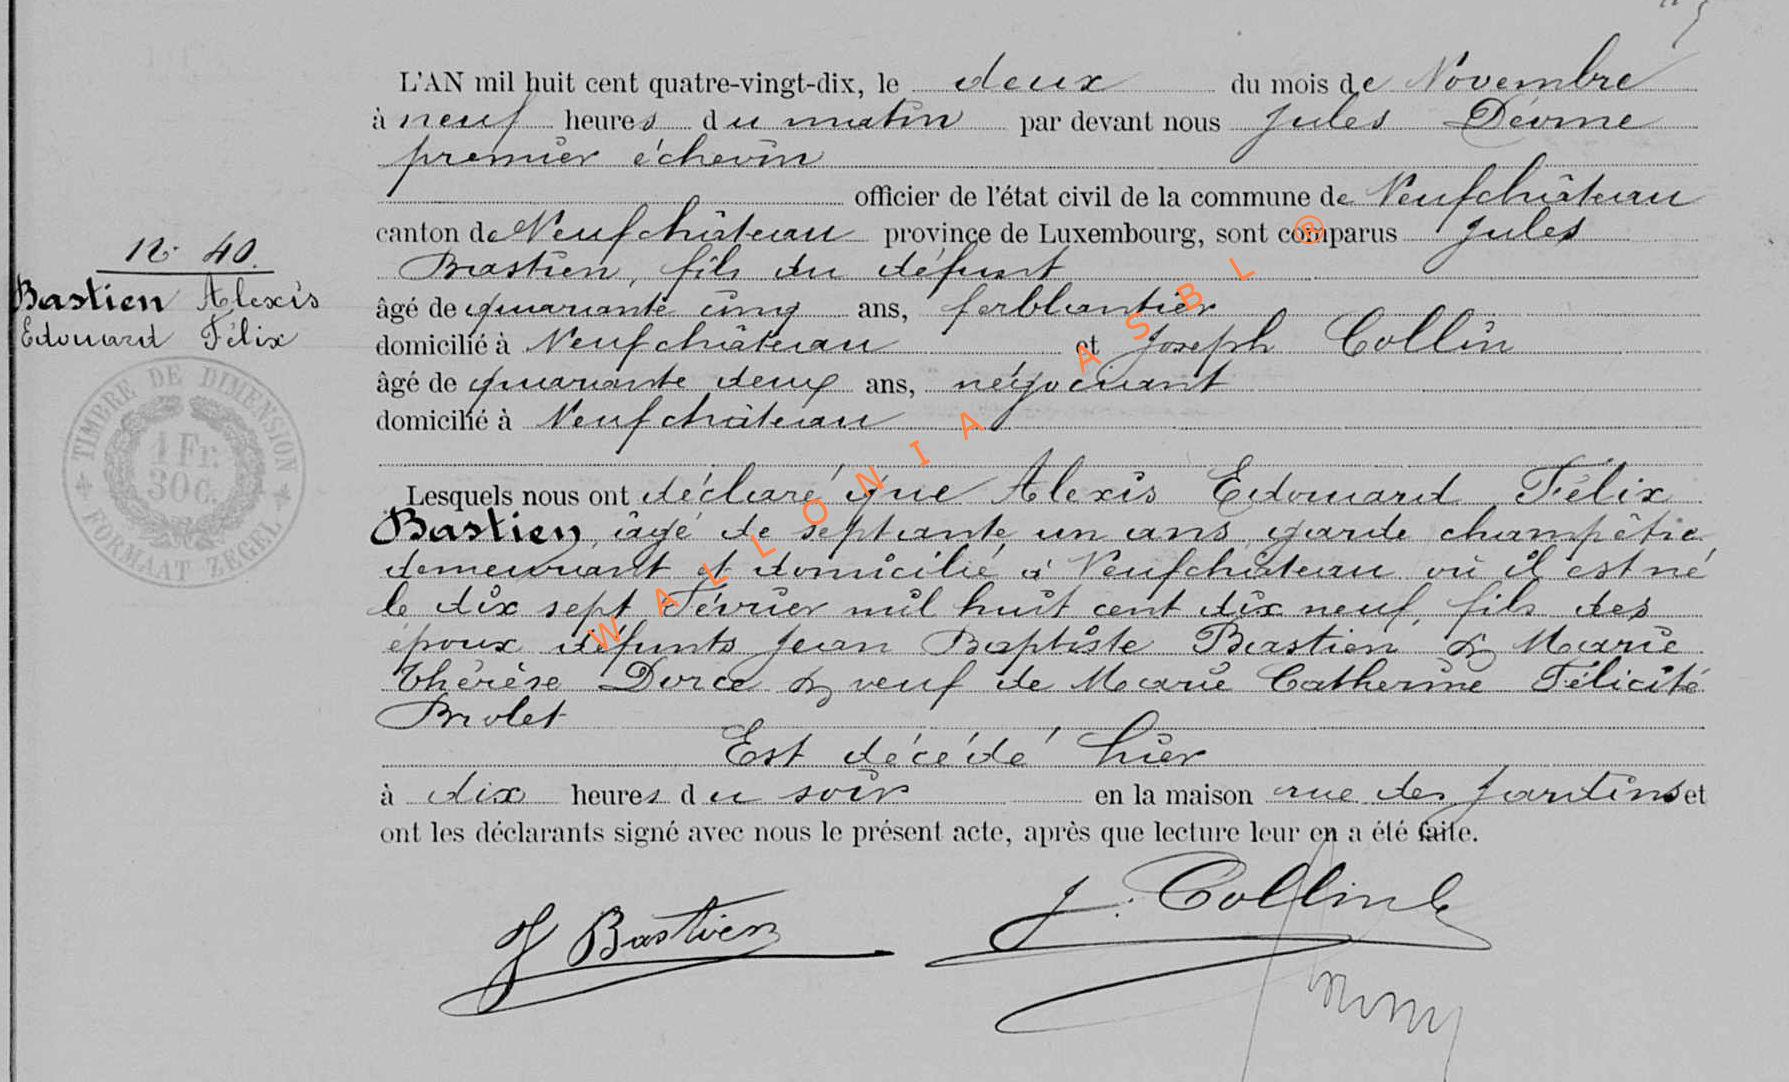 L'AN mil huit cent quatre-vingt-dix, le deux du mois de Novembre
à neuf heures du matin par devant nous Jules
premier échevin
officier de l'état civil de la commune de Neufchâteau
canton de Neufchâteau province de Luxembourg, sont comparus Jules
Bastien, fils du défunt
âgé de quarante cinq ans, ferblantier
domicilié à Neufchâteau et Joseph Collin
âgé de quarante deux ans, négociant
domicilié à Neufchâteau
Nº 40.
Bastien Alexis
Edouard Félix
TIMBRE DE DIMENSION
1 Fr.
30 C.
FORMAAT ZEGEL
Lesquels nous ont déclaré que Alexis Edouard Félix
Bastien, âgé de septante un ans, garde champêtre
demeurant et domicilié à Neufchâteau où il est né
le dix sept Février mil huit cent dix neuf, fils des
époux défunts Jean Baptiste Bastien & Marie
Thérèse & veuf de Marie Catherine Félicité
Brolet
Est décédé hier
à dix heures du soir en la maison rue des Jardins et
ont les déclarants signé avec nous le présent acte, après que lecture leur en a été faite.
J Bastien
J. Collin
WALLONIA ASBL ®